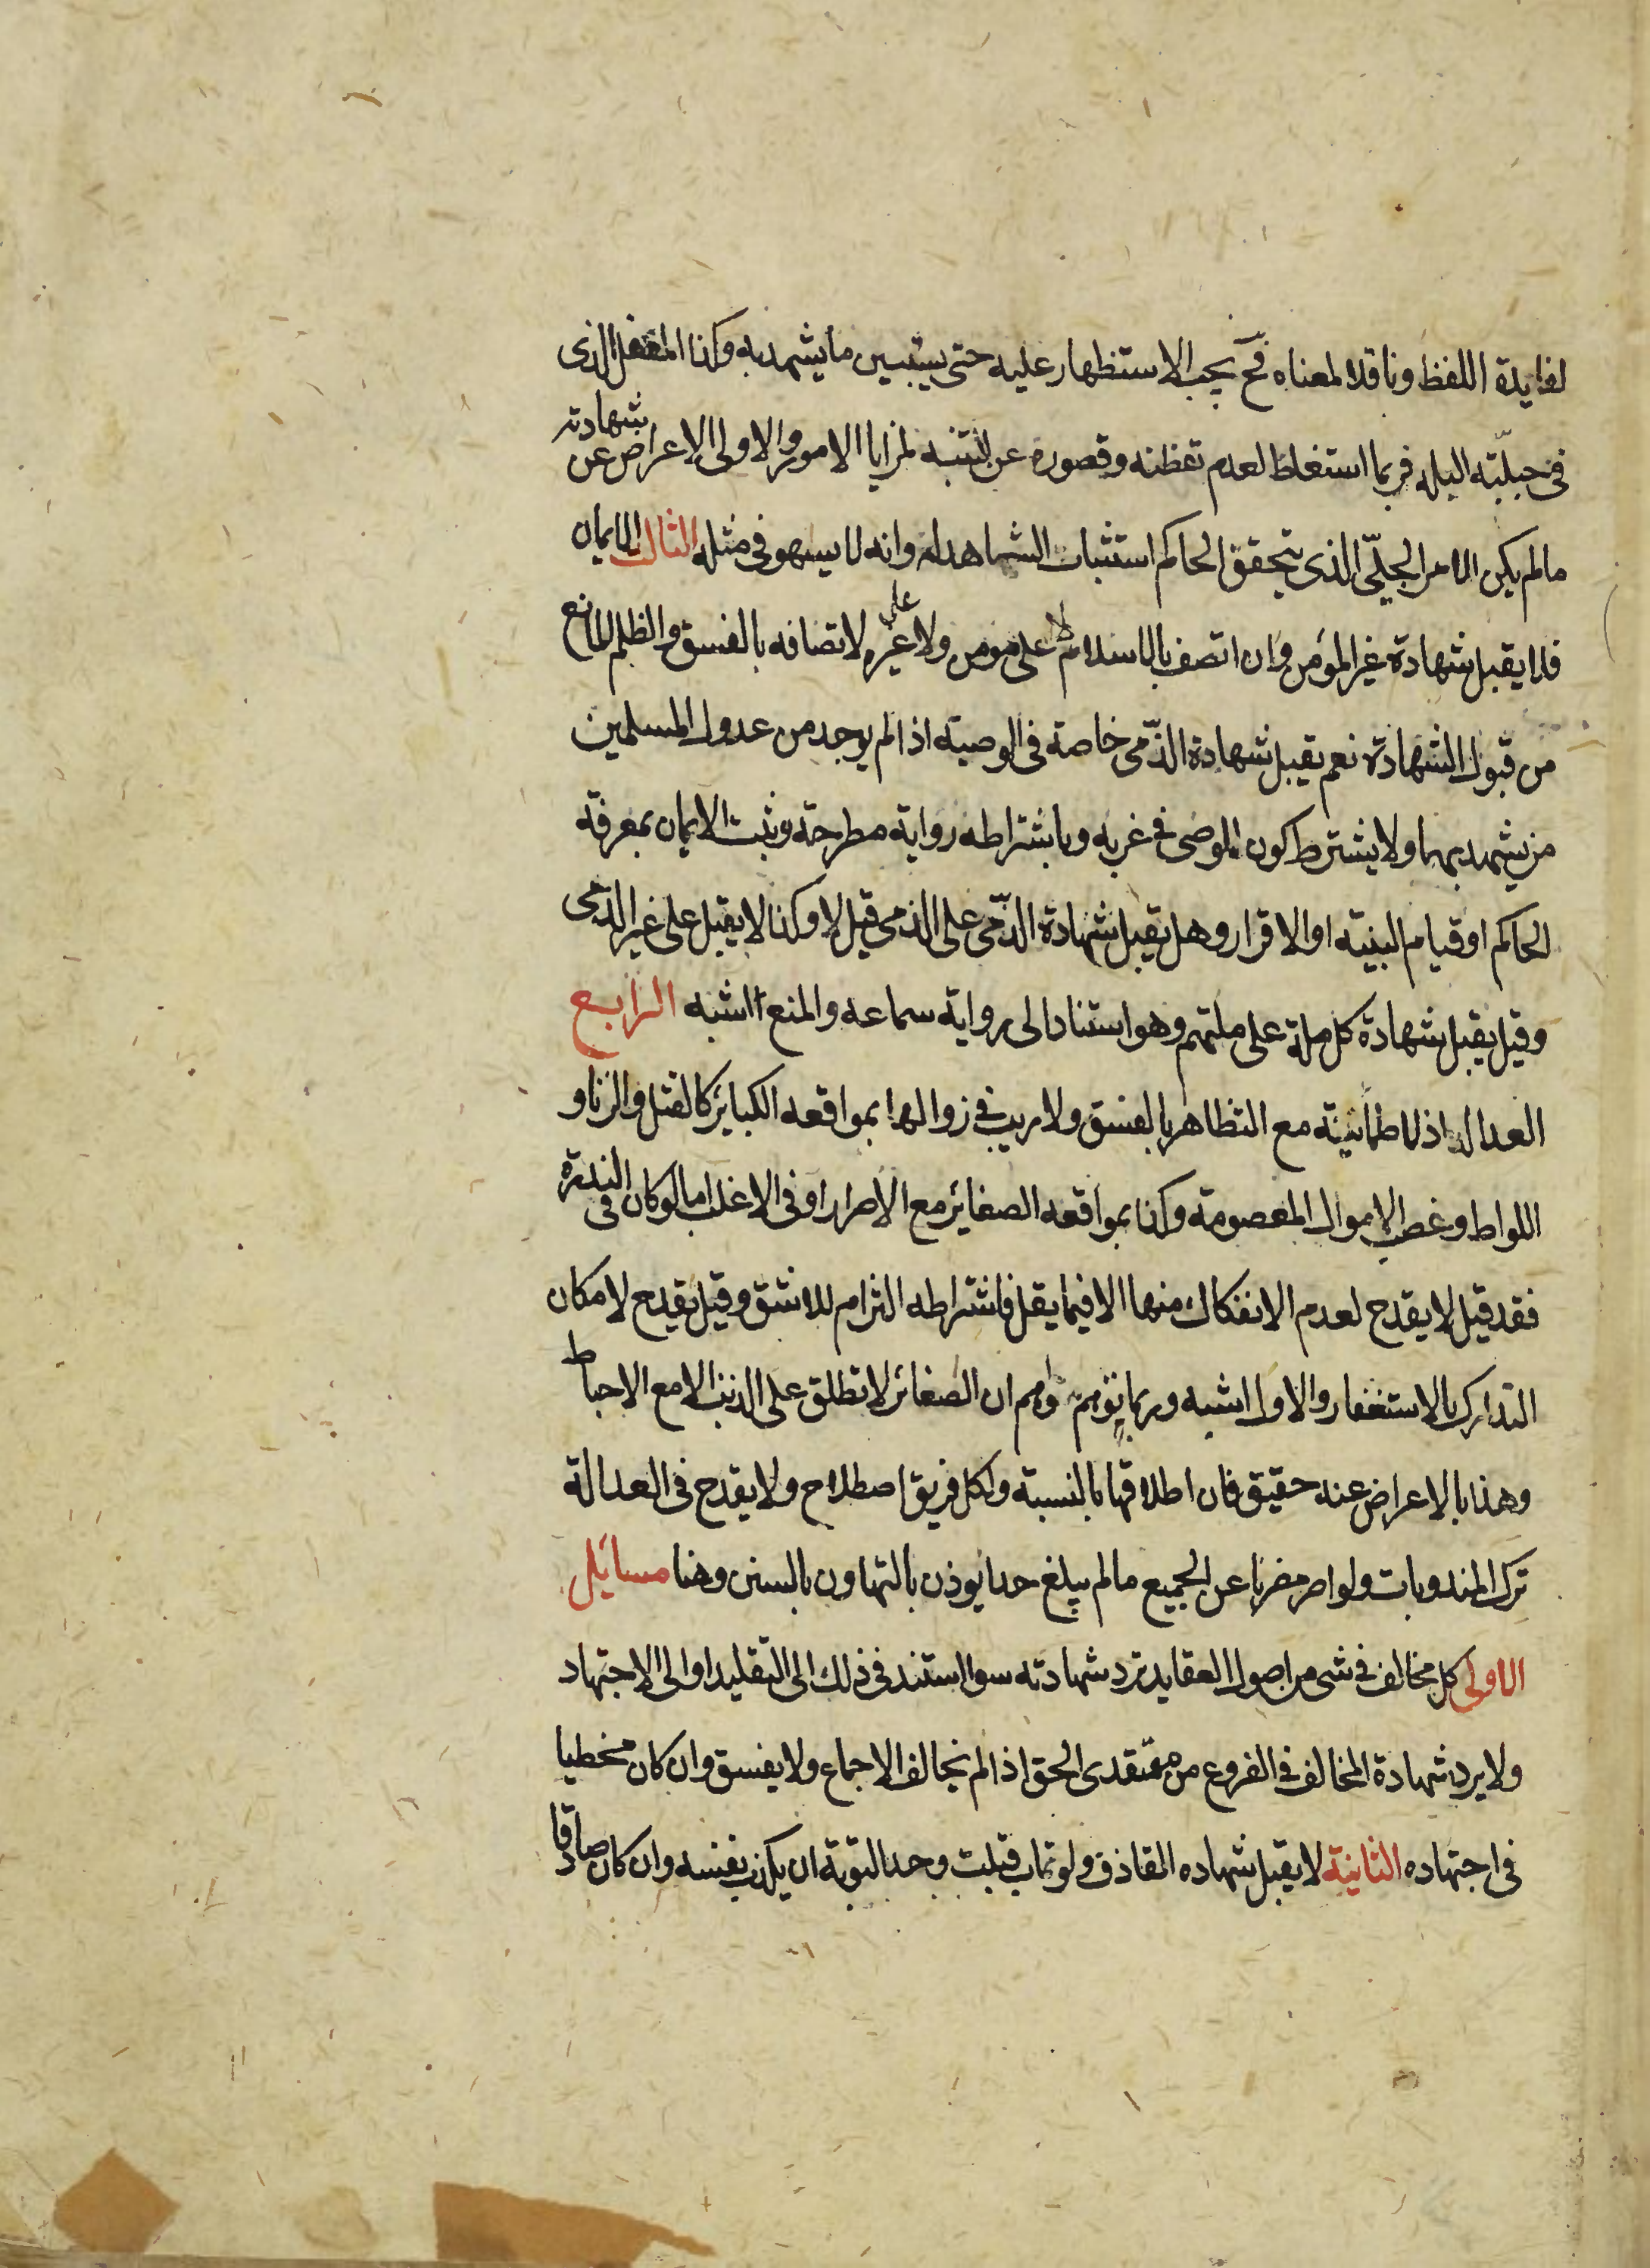 لفايدة اللفظ وناقلا لمعناه فح يجب الاستظهار عليه حتى يستبين ما يشهد به وكذا المغفل الذى
فى جبلّته البله فربما استغلط لعدم تفطنه وقصوره عن التنبه لمزايا الامور والاولى الاعراض عن شهادته
ما لم يكن الامر الجلىّ الذى يتحقق الحاكم استثبات الشاهد له وانه لا يسهو فى مثله الثالث الايمان
فلا يقبل شهادة غير المؤمن وان اتصف بالاسلام لا على مومن ولا على غيره لاتصافه بالفسق والظلم المانع
من قبول الشهادة نعم يقبل شهادة الذّمى خاصة فى الوصية اذا لم يوجد من عدول المسلمين
من يشهد بها ولا يشترط كون الموصى فى غربه وباشتراطه رواية مطرحة ويثبت الايمان بمعرفة
الحاكم او قيام البينة او الاقرار وهل يقبل شهادة الذّمى على الذمى قيل لا وكذا لا يقبل على غير الذمى
وقيل يقبل شهادة كل ملة على ملتهم وهو استنادا الى رواية سماعه والمنع اشبه الرابع
العدالة اذ لا طمانينة مع التظاهر بالفسق ولا ريب فى زوالها بمواقعه الكبائر كالقتل والزنا و
اللواط وغصب الاموال المعصومة وكذا بمواقعه الصغائر مع الاصرار او فى الاغلب اما لو كان فى الندرة
فقد قيل لا يقدح لعدم الانفكاك منها الا فيما يقل فاشتراطه التزام للاشق وقيل يقدح لامكان
التدارك بالاستغفار والاول اشبه وربما توهم واهم ان الصغائر لا تطلق على الذنب الا مع الاحباط
وهذا بالاعراض عنه حقيق فان اطلاقها بالنسبة ولكل فريق اصطلاح ولا يقدح فى العدالة
ترك المندوبات ولو اصر مضربا عن الجميع ما لم يبلغ حدا يوذن بالتهاون بالسنن وهنا مسائل
الاولى كل مخالف فى شى من اصول العقايد ترد شهادته سوا استند فى ذلك الى التقليد او الى الاجتهاد
ولا يرد شهادة المخالف فى الفروع من معتقدى الحق اذا لم يخالف الاجماع ولا يفسق وان كان مخطيا
فى اجتهاده الثانية لا يقبل شهاده القاذف ولو تاب قبلت وحد التوبة ان يكذب نفسه وان كان صادقا